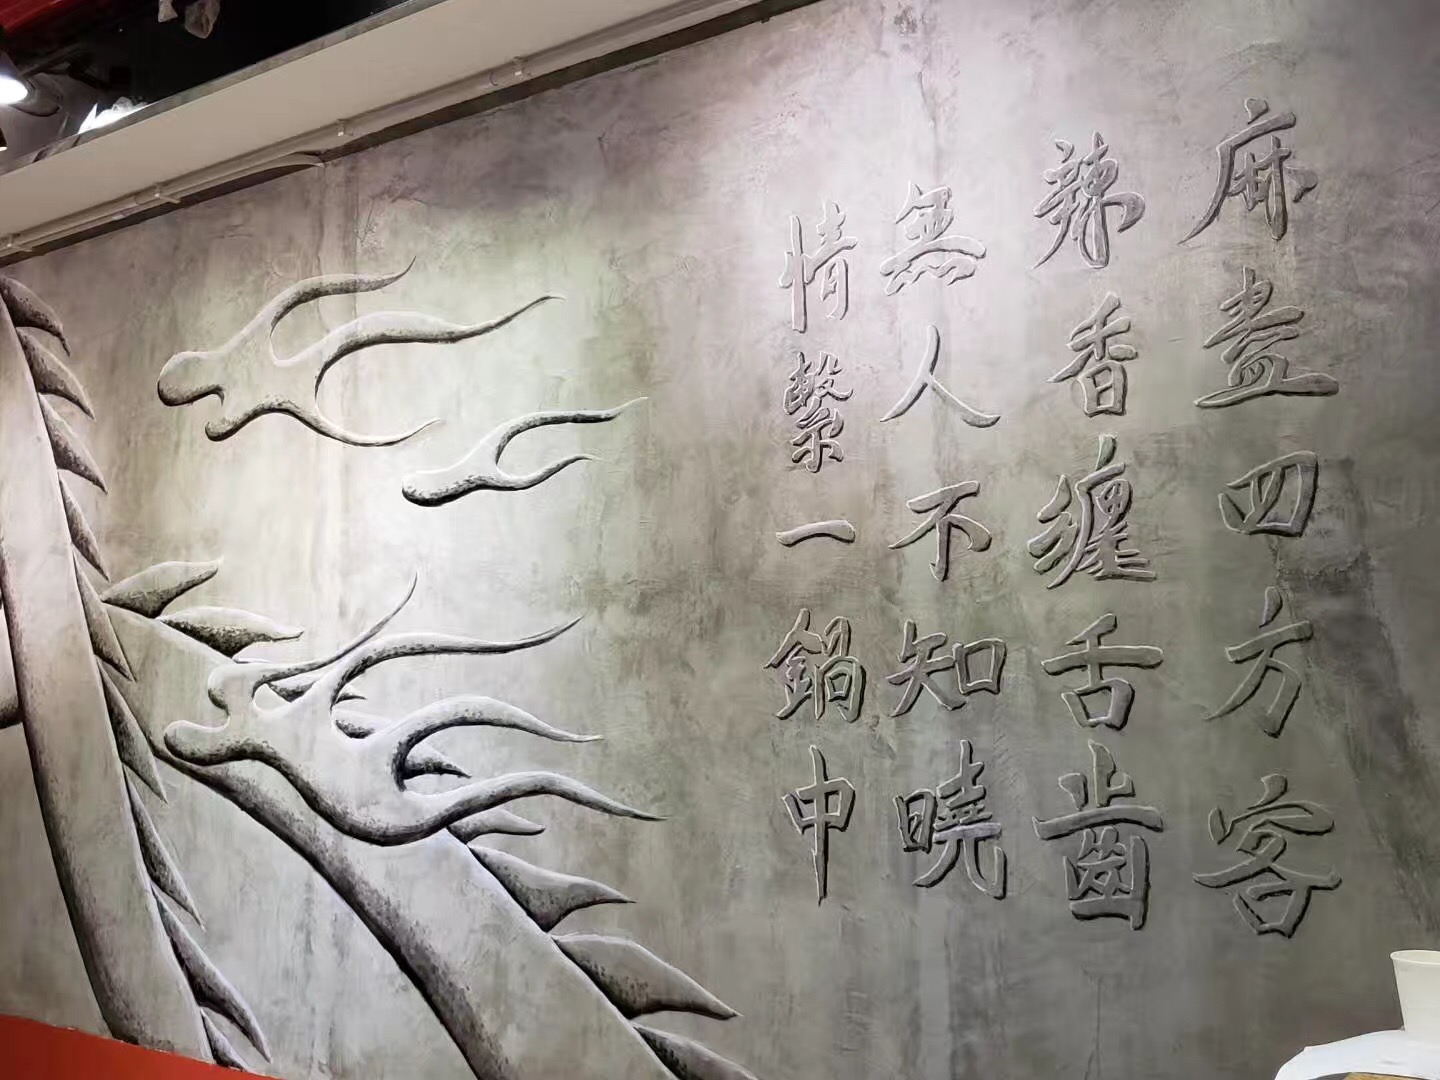 麻盡四方客
辣香纏舌齒
無人不知曉
情繫一鍋中